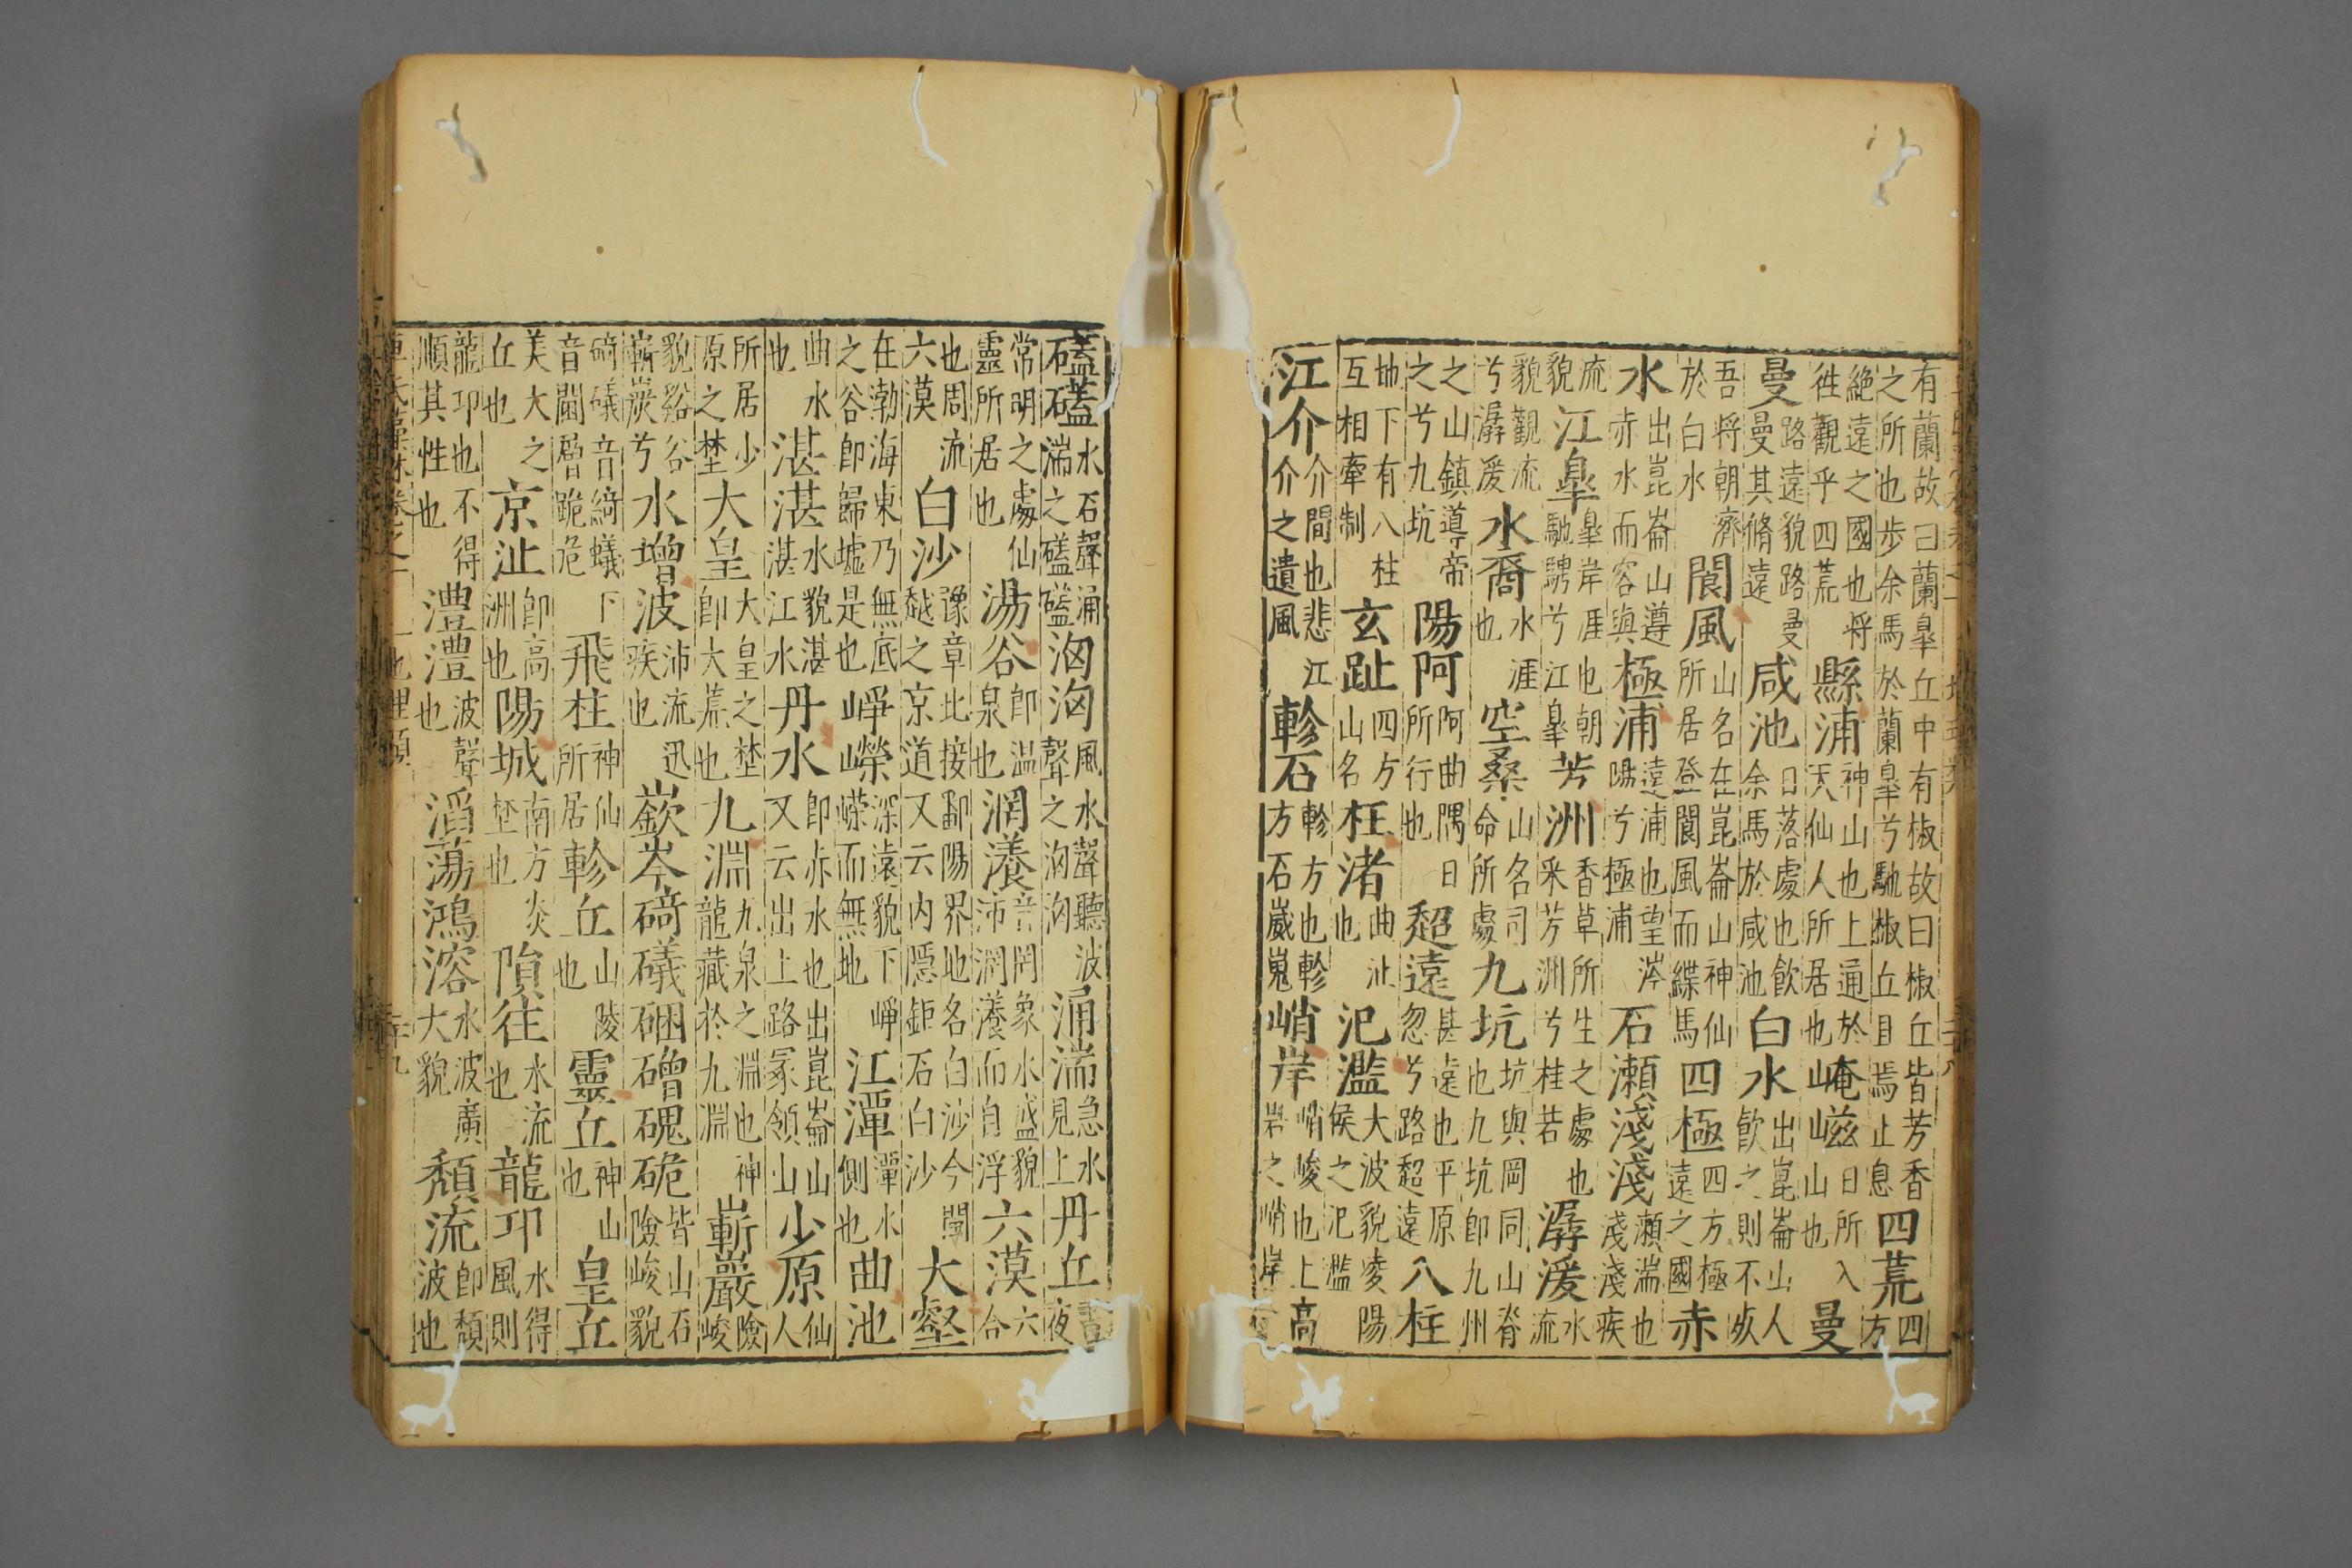 有蘭故曰蘭皋丘中有椒故曰椒丘皆芳香之所也步余馬於蘭皋兮馳椒丘且焉止息四荒四方
絕遠之國也將徃觀乎四荒縣浦神山也上通於天仙人所居也崦嵫日所入山也曼
曼路遠貌路曼曼其脩遠咸池日落處也飲余馬於咸池白水出崑崙山人飲之則不死
吾將朝濟於白水閬風山名在崑崙山神仙所居登閬風而緤馬四極四方極遠之國赤
水出崑崙山遵赤水而容與極浦遠浦也望涔陽兮極浦石瀨淺淺瀨湍也淺淺疾
流貌江皋皋岸涯也朝馳騁兮江皋芳洲香草所生之處也采芳洲兮桂若潺湲水流
貌觀流兮潺湲水裔水涯也空桑山名司命所處九坑坑與岡同山脊也九坑即九州
之山鎮導帝之兮九坑陽阿阿曲隅日所行也超遠甚遠也平原忽兮路超遠八柱
地下有八柱互相牽制玄趾四方山名枉渚曲沚也氾濫大波貌凌陽候之氾濫
江介介間也悲江介之遺風軫石軫方也軫方石崴嵬峭岸峭峻也上高岩之峭岸
礚礚水石聲涌湍之礚礚洶洶風水聲聽波聲之洶洶涌湍急水見上丹丘晝夜
常明之處仙靈所居也湯谷即温泉也㴏瀁音罔象水盛貌沛㴏瀁而自浮六漠六合
也周流六漠白沙豫章北接鄱陽界地名白沙今闡越之京道又云内隱鉅石白沙大壑
在渤海東乃無底之谷即歸墟是也崢嶸深遠貌下崢嶸而無地江潭潭水側也曲池
曲水也湛湛水貌湛湛江水丹水即赤水也出崑崙山又云出上路冢領山少原仙人
所居少原之埜大皇大皇之埜即大荒也九淵九泉之淵也神龍藏於九淵嶄巖險峻
貌谿谷嶄巖兮水增波沛流迅疾也嶔岑碕礒碅磳磈硊皆山石險峻貌
碕礒音綺蟻下音閫層跪危飛柱神仙所居軫丘山陵也靈丘神山也皇丘
美大之丘也京沚即高洲也陽城南方炎埜也隕往水流也龍邛水得風則
龍邛也不得順其性也澧澧波聲也滔蕩鴻溶水波廣大貌頹流即頹波也